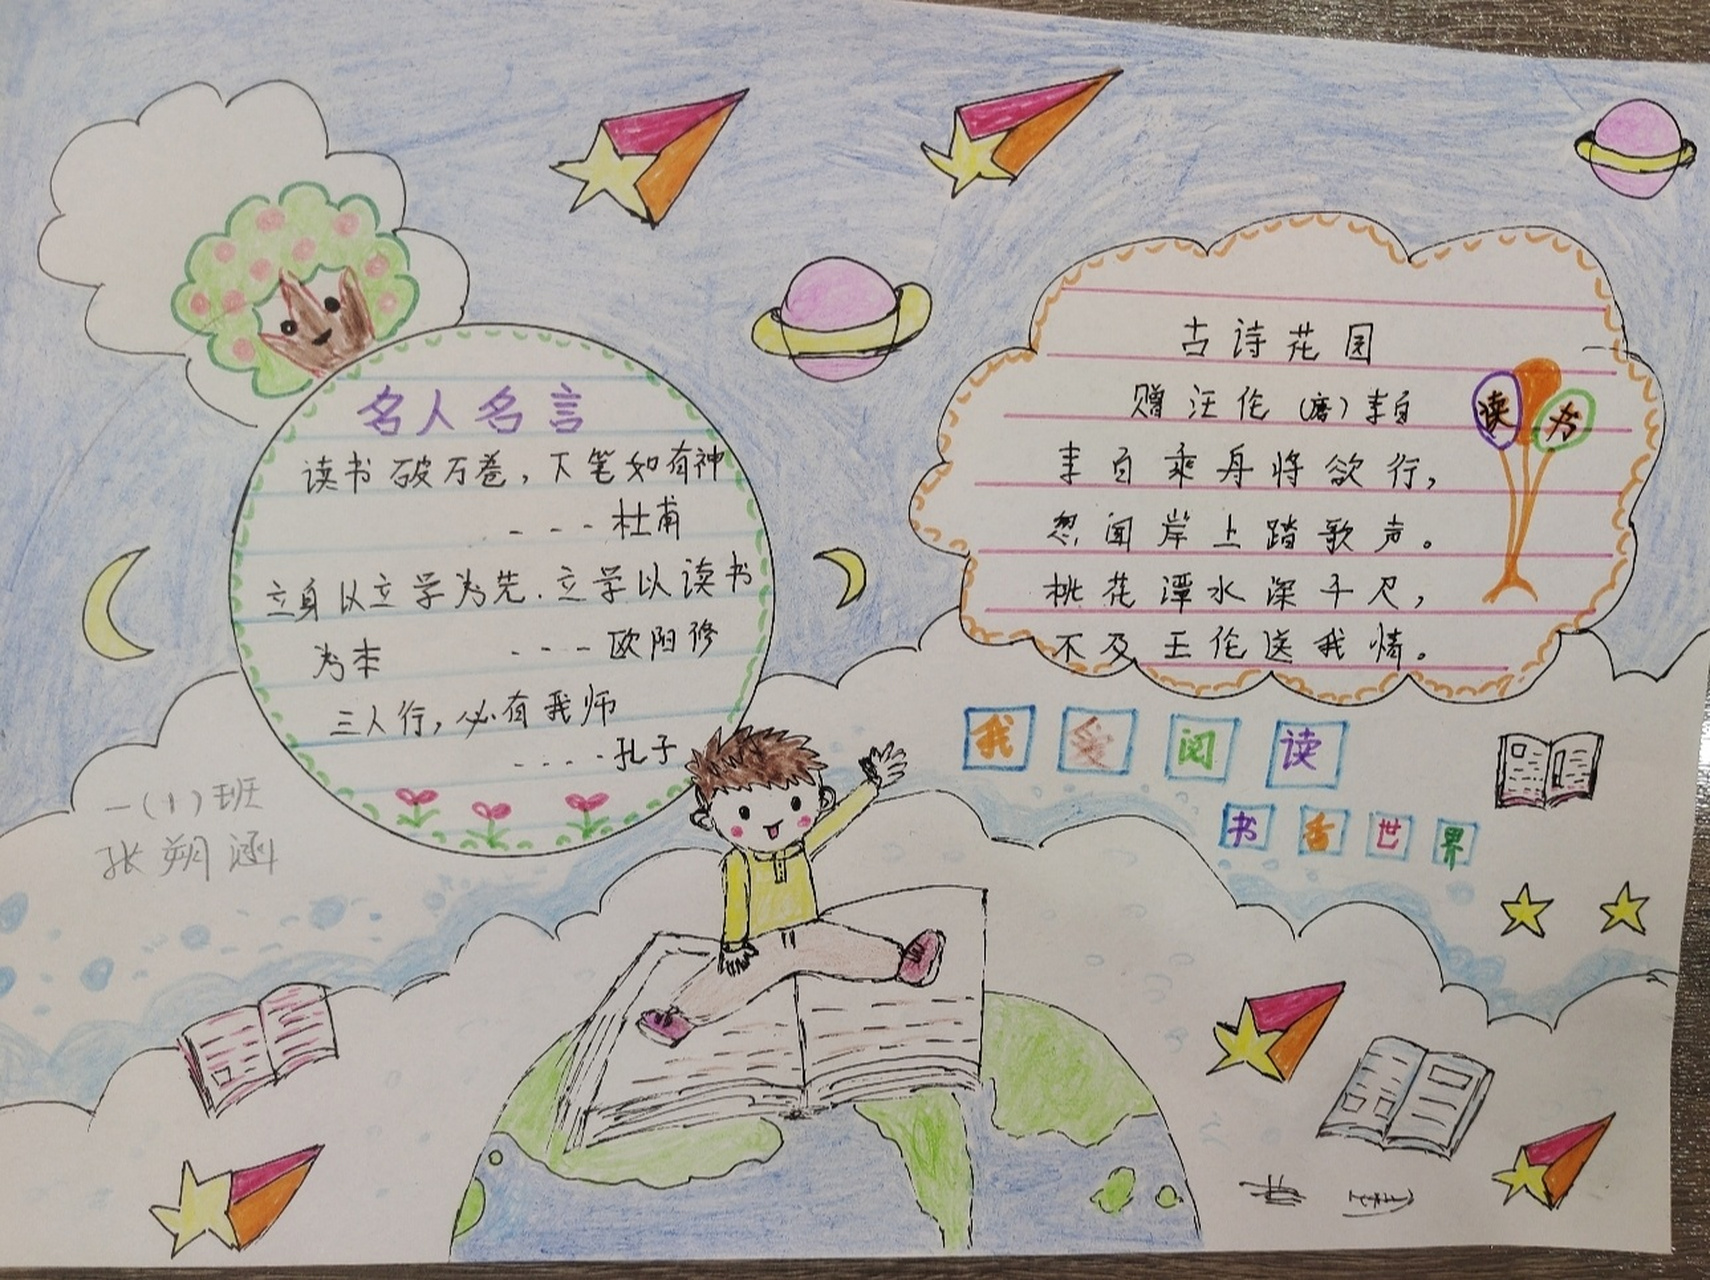 名人名言
读书破万卷，下笔如有神
- - - 杜甫
立身以立学为先．立学以读书
为本 - - - - 欧阳修
三人行，必有我师
- - - - 孔子
一（1）班
张朔涵
古诗花园
赠汪伦（唐）李白
李白乘舟将欲行，
忽闻岸上踏歌声。
桃花潭水深千尺，
不及王伦送我情。
读书
我爱阅读
书香世界